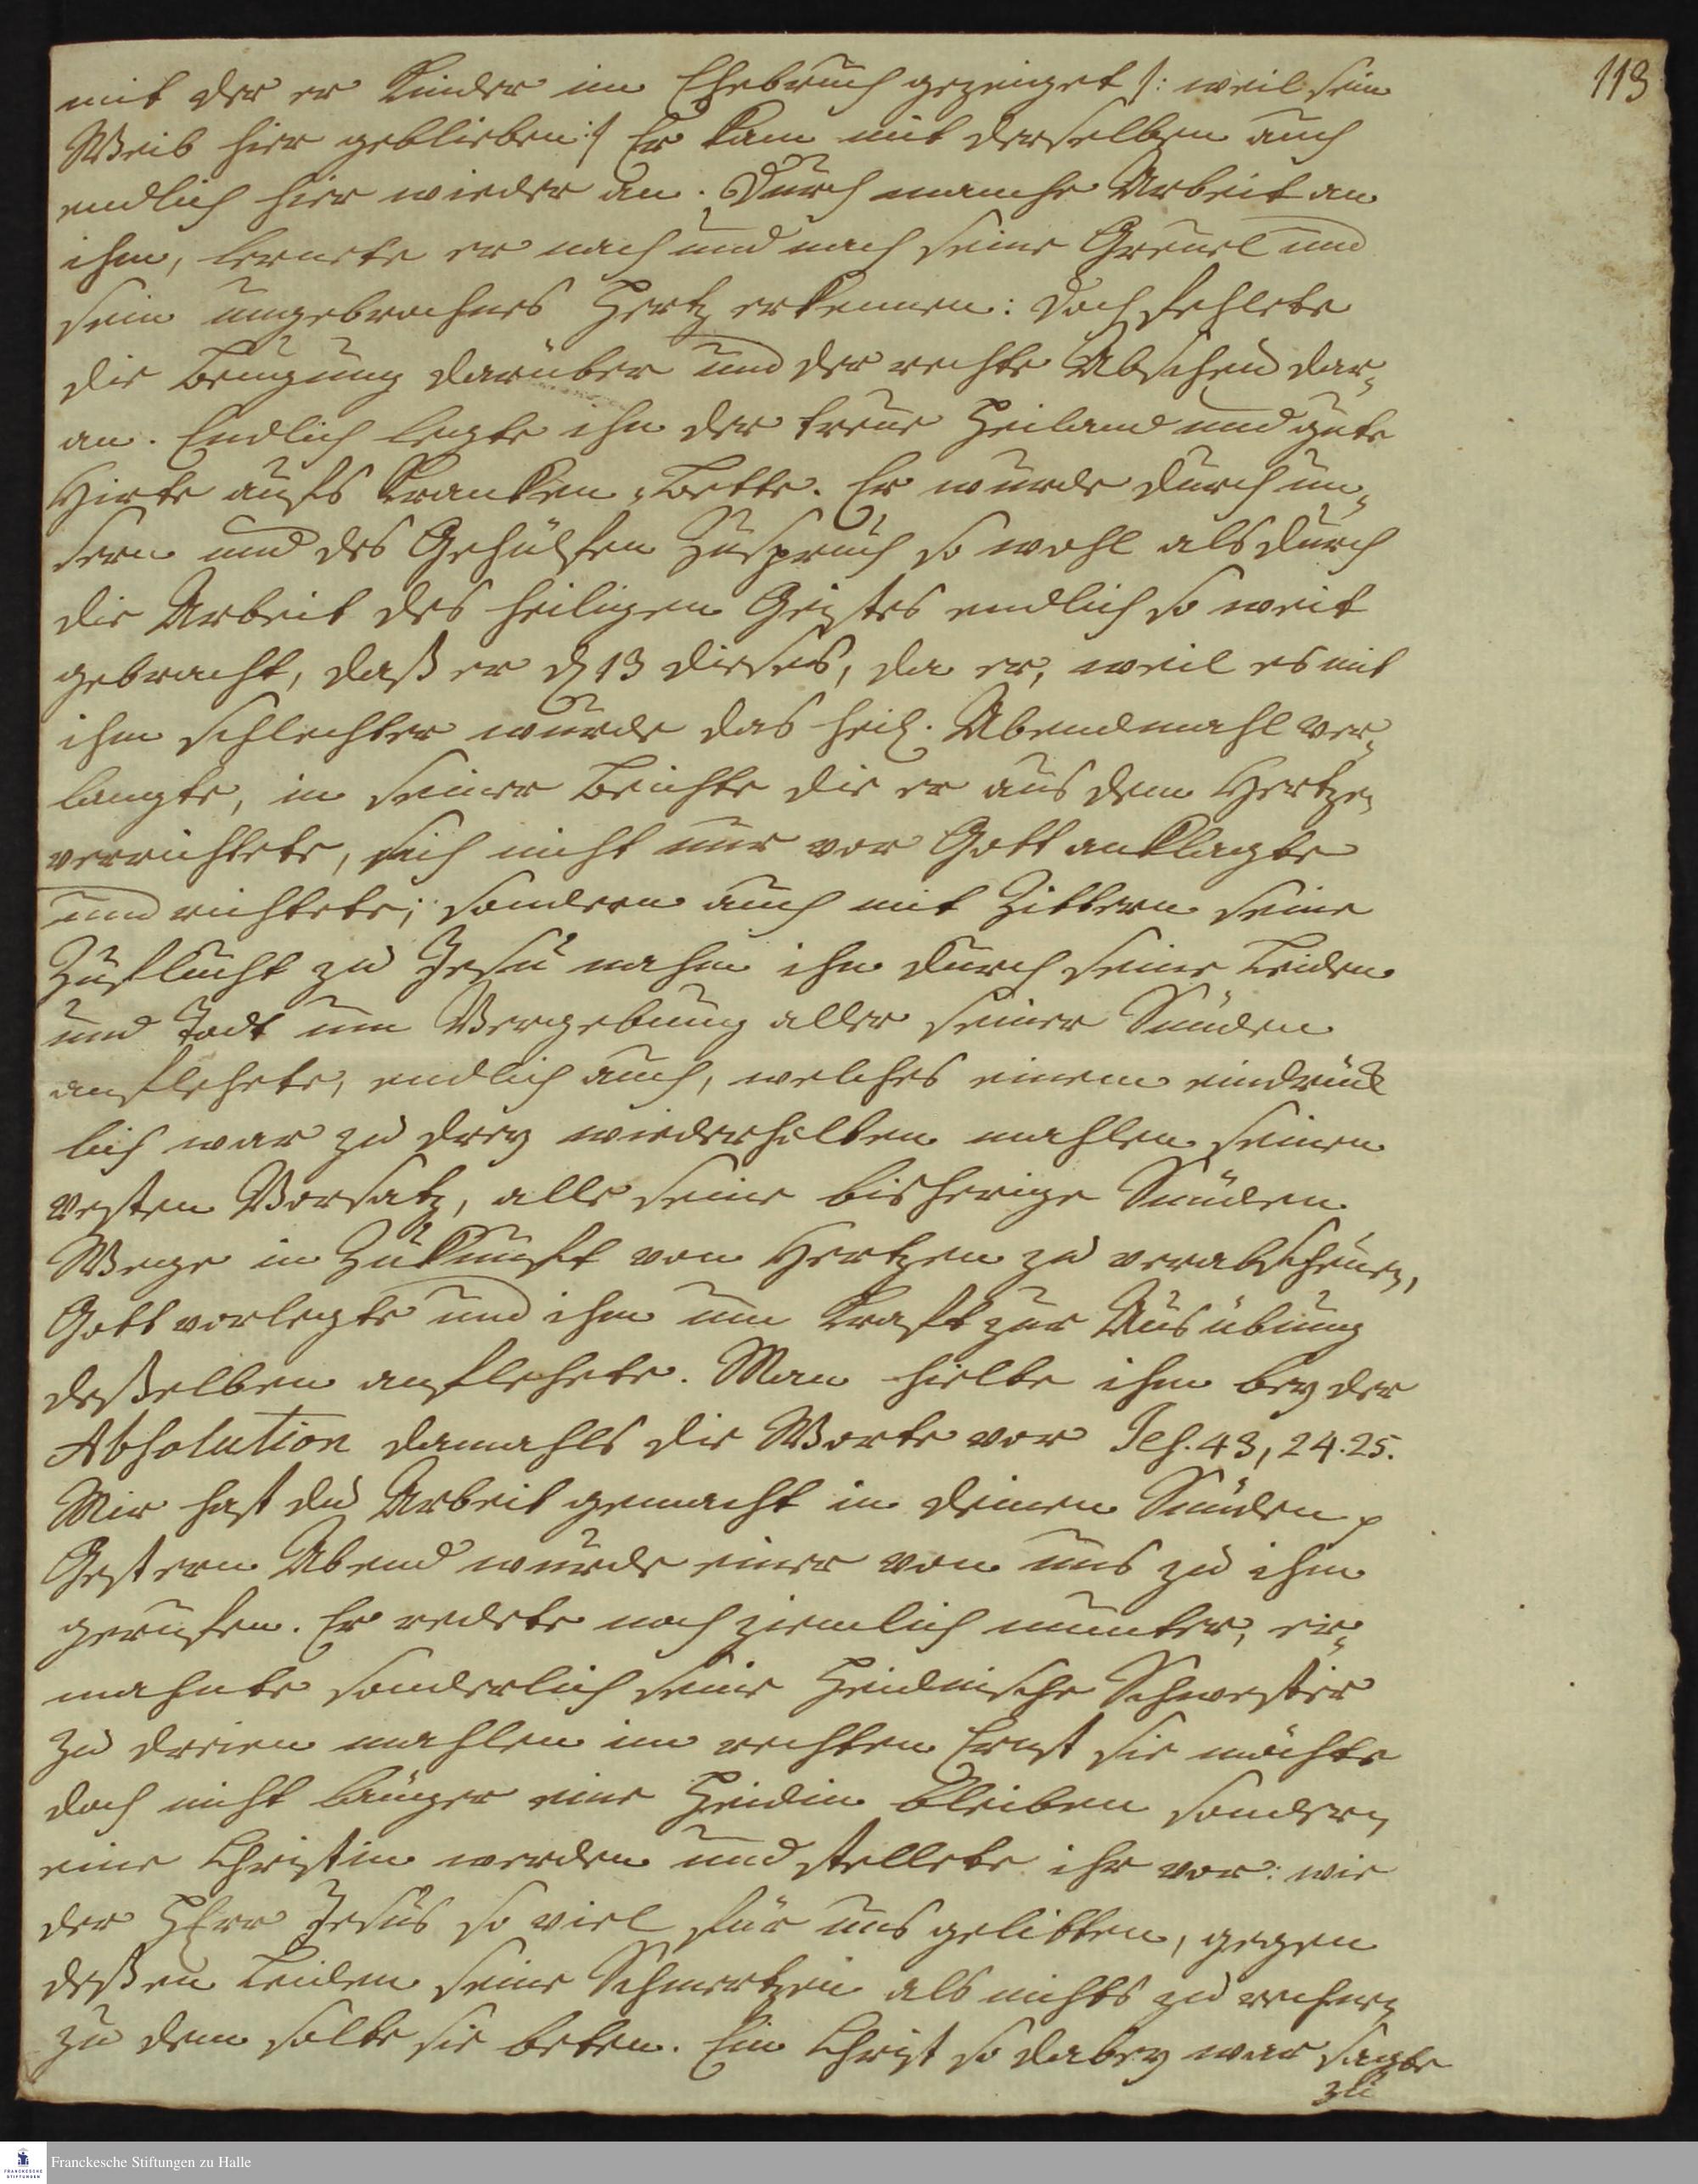 113
mit der er Kinder im Ehebruch gezeuget /: weil sein
Weib hier geblieben :/ Er kam mit derselben auch
endlich hier wieder an. Durch manche Arbeit an
ihm, lernete er nach und nach seine Greuel und
sein ungebrochnes Hertz erkennen: doch fehlete
die Beugung darüber und der rechte Abscheu dar-
an. Endlich legte ihn der treue Heiland und gute
Hirte aufs Krancken-Bette. Er wurde durch un-
sern und des Gehülfen Zuspruch so wohl als durch
die Arbeit des heiligen Geistes endlich so weit
gebracht, daß er d 13 dieses, da er, weil es mit
ihm schlechter wurde das heil. Abendmahl ver-
langte, in seiner Beichte die er aus dem Hertzen
verrichtete, sich nicht nur vor Gott anklagte
und richtete; sondern auch mit Zittern seine
Zuflucht zu Jesu nahm ihn durch seine Leiden
und Todt um Vergebung aller seiner Sünden
anflehete, endlich auch, welches einem eindrück
lich war zu drey wiederholten mahlen seinen
vesten Vorsatz, alle seine bisherige Sünden
Wege in Zukunft von Hertzen zu verabscheuen,
Gott vorlegte und ihn um Kraft zur Ausübung
deßelben anflehete. Man hielte ihm bey der
Absolution damahls die Worte vor Jes. 43, 24. 25.
Mir hast du Arbeit gemacht in deinen Sünden p
Gestern Abend wurde einer von uns zu ihm
gerufen. Er redete noch ziemlich munter, er-
mahnte sonderlich seine Heidnische Schwester
zu dreien mahlen im rechten Ernst sie möchte
doch nicht länger eine Heidin bleiben sondern
eine Christin werden und stellete ihr vor: wie
der HErr Jesus so viel für uns gelitten, gegen
deßen Leiden seine Schmertzen als nichts zu rechnen
zu dem solte sie beten. Ein Christ so dabey war sagte
zu
Franckesche Stiftungen zu Halle